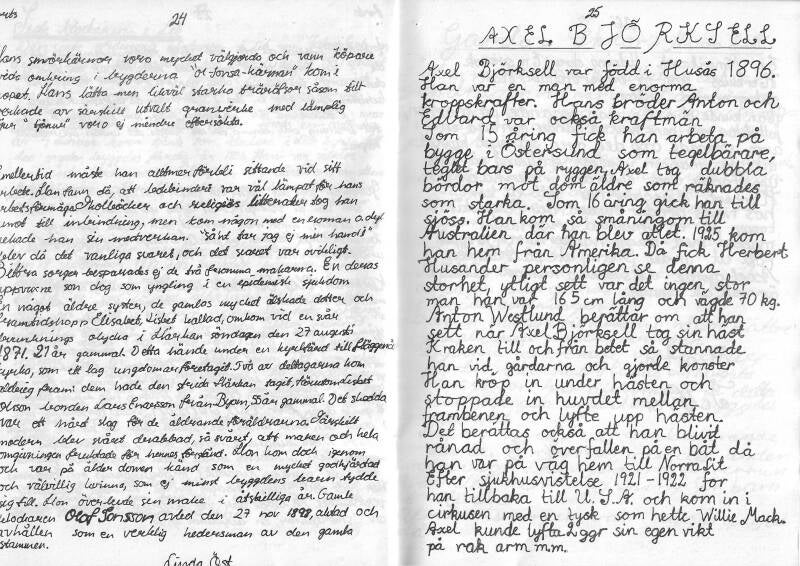 24
smörkärnor voro mycket välgjorda och vann köpare
vida omkring i bygderna "Ol Jonsa-kärnan" kom i
ropet. Hans lätta men likväl starka träräfsor såsom till
verkade av särskilt utvalt granvirke med lämplig
voro ej mindre eftersökta.
Emellertid måste han alltmer förbli sittande vid sitt
arbete. Han fann då, att bokbinderi var väl lämpat för hans
arbetsförmåga. Skolböcker och religiös litteratur tog han
emot till inbindning, men kom någon med en roman o.dyl
nekade han sin medverkan. "Sånt tar jag ej min hand i"
blev då det vanliga svaret, och det svaret var orubbligt.
sorger besparades ej de två fromma makarna. En deras
uppvuxne son dog som yngling i en epidemisk sjukdom
En något äldre syster, de gamlas mycket älskade dotter och
framtidshopp Elisabet, Lisbet kallad, omkom vid en svår
drunknings olycka i Storhan söndagen den 27 augusti
1871. 21 år gammal. Detta hände under en kyrkfärd till
kyrka, som ett lag ungdomar företagit. Två av deltagarna kom
aldrig fram: dem hade den strida tagit, förutom Lisbet
Olson bonden Lars Enarsson från Byom, år gammal. Det skedda
var ett hårt slag för de åldrande föräldrarna. Särskilt
modern blev svårt drabbad, så svårt, att maken och hela
omgivningen fruktade för hennes förstånd. Hon kom dock igenom
och var på ålder domen känd som en mycket godhjärtad
och välvillig kvinna, som ej minst bygdens barn tydde
sig till. Hon överlevde sin make i åtskilliga år. Gamle
Olof Jonsson avled den 27 nov 1898, aktad och
avhållen som en verklig hedersman av den gamla
stammen.
Linda Öst
25
AXEL BJÖRKSELL
Axel Björksell var född i Husås 1896.
Han var en man med enorma
kroppskrafter. Hans bröder Anton och
Edvard var också kraftmän
Som 15 åring fick han arbeta på
bygge i Östersund som tegelbärare,
teglet bars på ryggen, Axel tog dubbla
bördor mot dom äldre som räknades
som starka. Som 16 åring gick han till
sjöss. Han kom så småningom till
Australien där han blev atlet. 1925 kom
han hem från Amerika. Då fick Herbert
Husander personligen se denna
storhet, ytligt sett var det ingen stor
man han var 165 cm lång och vägde 70 kg.
Anton Westlund berättar om att han
sett när Axel Björksell tog sin häst
Kraken till och från betet så stannade
han vid gårdarna och gjorde konster
Han kröp in under hästen och
stoppade in huvdet mellan
frambenen och lyfte upp hästen.
Det berättas också att han blivit
rånad och överfallen på en båt då
han var på väg hem till Norrafit
Efter sjukhusvistelse 1921-1922 for
han tillbaka till U.S.A. och kom in i
cirkusen med en tysk som hette Willie Mack.
Axel kunde lyfta 2 ggr sin egen vikt
på rak arm m.m.